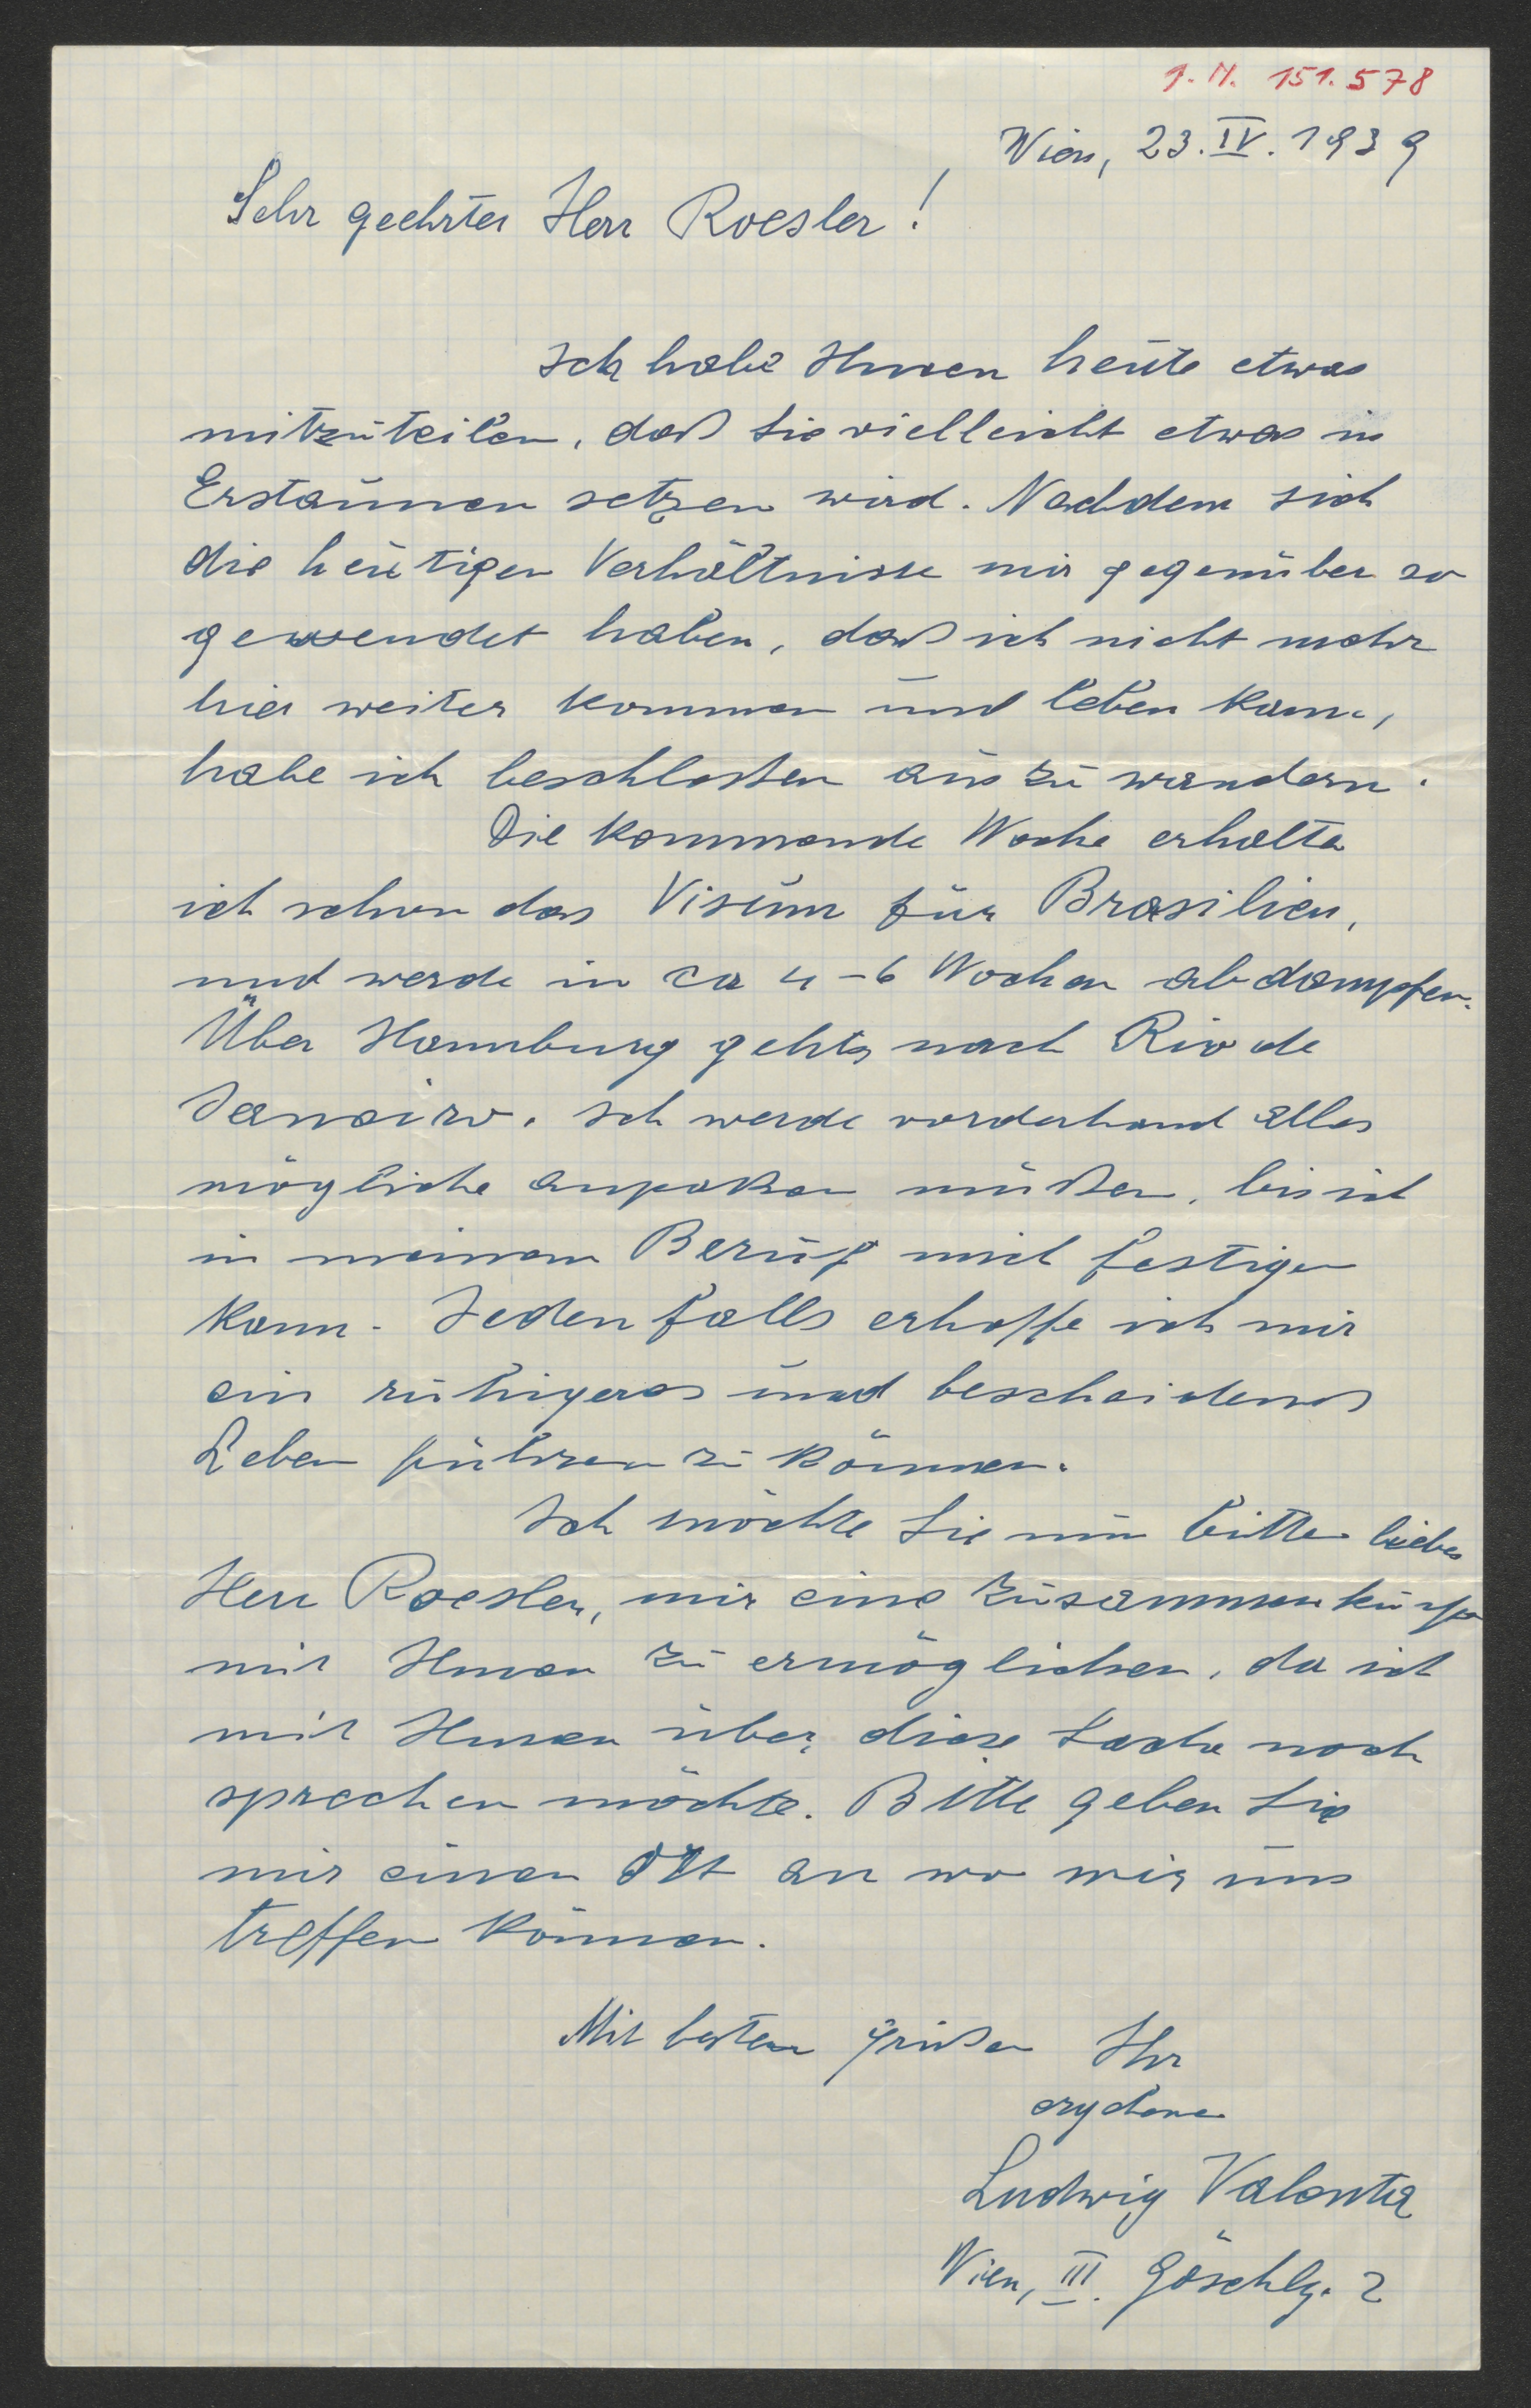 I. N. 151.578
Wien, 23. IV. 1939
Sehr geehrter Herr Roesler!
Ich habe Ihnen heute etwas
mitzuteilen, daß Sie vielleicht etwas in
Erstaunen setzen wird. Nachdem sich
die heutigen Verhältnisse mir gegenüber so
gewendet haben, daß ich nicht mehr
hier weiter kommen und leben kann,
habe ich beschloßen auszuwandern.
Die kommende Woche erhalte
ich schon das Visum für Brasilien,
und werde in ca 4-6 Wochen abdampfen.
Über Hamburg gehts nach Rio de
Janeiro. Ich werde vorderhand alles
mögliche anpaken müßen, bis ich
in meinem Beruf mich festigen
kann. Jedenfalls erhoffe ich mir
ein ruhigeres und bescheidenes
Leben führen zu können.
Ich möchte Sie nun bitten lieber
Herr Roesler, mir eine Zusammenkunft
mit Ihnen zu ermöglichen, da ich
mit Ihnen über diese Sache noch
sprechen möchte. Bitte geben Sie
mir einen Ort an wo wir uns
treffen können.
Mit besten Grüßen Ihr
ergebener
Ludwig Valenta
Wien, III. Göschlg. 2